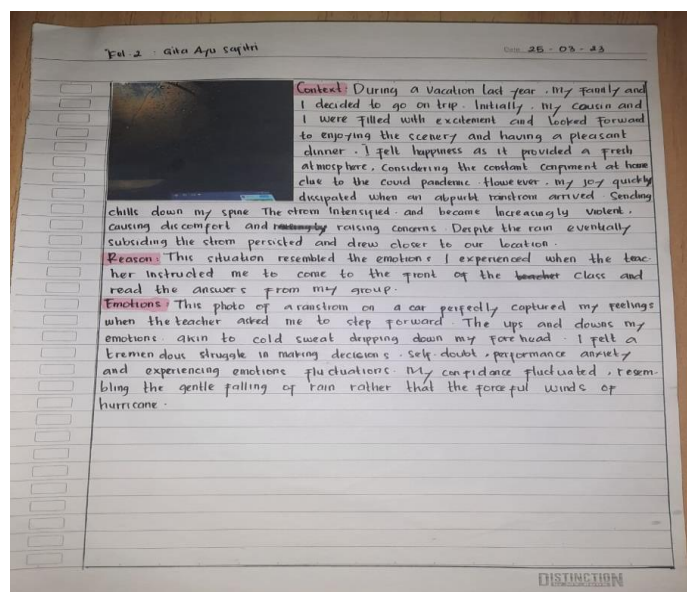 Kel. 2 : Gita Ayu Sapitri
Date 25 - 03 - 23
Context: During a vacation last year . My Family and
I decided to go on trip. Initially . my cousin and
I were filled with excitement and looked forward
to enjoying the scenery and having a pleasant
dinner . I felt happiness as it provided a fresh
atmosphere, considering the constant confinment at home
due to the covid pandemic. However , my joy quickly
dissipated when an abpurbt ranstrom arrived . Sending
chills down my spine The strom Intensified . and became Increasingly violent .
causing discomfort and raising concerns . Despite the rain eventually
subsiding the strom persisted and drew closer to our location .
Reason : This situation resembled the emotions I experienced when the teac-
her instructed me to come to the front of the class and
read the answers from my group .
Emotions : This photo of a ranstrom on a car perfectly captured my feelings
when the teacher asked me to step forward . The ups and downs my
emotions . akin to cold sweat dripping down my forehead . I felt a
tremendous struggle in making decisions . self-doubt , performance anxiety
and experiencing emotions fluctuations . My confidance fluctuated , resem-
bling the gentle falling of rain rather that the forceful winds of
hurricane .
DISTINCTION